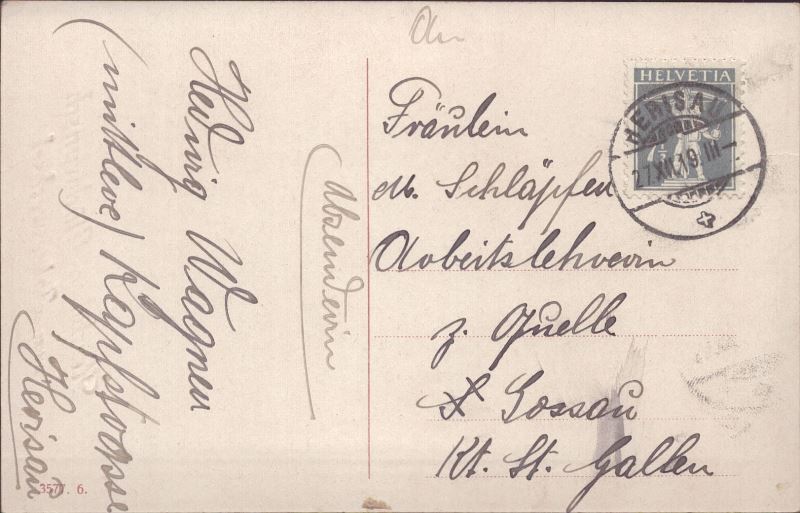 An
HELVETIA
HERISAU
27.XII.19. III
Fräulein
M. Schläpfer
Arbeitslehrerin
z. Quelle
Gossau
Kt. St. Gallen
Absenderin
Hedwig Wagner
(mittlere)
Herisau
3577. 6.